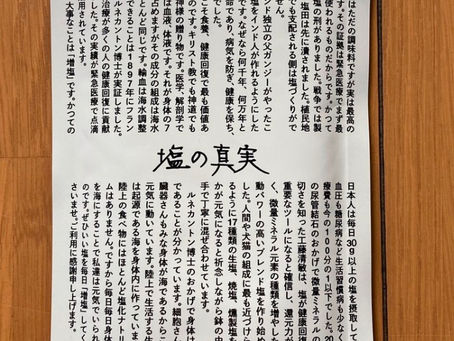 はただの調味料ですが実は最高の
す。その証拠は緊急医療でまず最
使われるものだからです。かつて
塩の刑がありました。戦争では製
塩田は先に潰されました。植民地
でも支配される側は塩づくりがで
ンド独立の父ガンジーがやったこ
塩をインド人が作れるようにした
す。なぜなら何千年、何万年と
命であり、病気を防ぎ、健康を保ち、
こそ食養、健康回復で最も価値あ
神様の贈り物です。キリスト教でも神道でも
す。医学、解剖学で
は血液、体液です。それが身体の7
占めますがその成分組成は海水
とんど同じです。輸血は海水調整
できることは1897年にフラン
ルネカントン博士が実証しました。
治療が多くの人の健康回復に貢献
ました。その実績が緊急医療で点滴
用されています。
大事なことは「増塩」です。かつての
塩の真実
日本人は毎日30g以上の塩を摂取して
血圧も糖尿病など生活習慣病も少なく
療費も今の100分の1以下でした。20
の尿管結石のおかげで微量ミネラルの
切さを知った工藤清敏は、塩が健康回復
重要なツールになると確信し、還元力が
く、微量ミネラル元素の種類を増やした
動パワーの高いブレンド塩を作り始め
した。人間や犬猫の組成に最も近づけら
るように17種類の生塩、焼塩、燻製塩を
かが元気になると祈念しながら鉢の中
手で丁寧に混ぜ合わせています。
カントン博士のおかげで身体は
であることが分かっています。細胞さん
臓器さんもみな身体が海であるからこ
元気に動いています。陸上で生活する生
は起源である海を身体内に作っていま
陸上の食べ物にはほとんど塩化ナトリ
ムはありません。ですから毎日毎日身体
を海にすることで私達は元気でいられ
のです。ぜひいい塩を毎日「増塩」してく
さいませ。ご利用に感謝申し上げます。